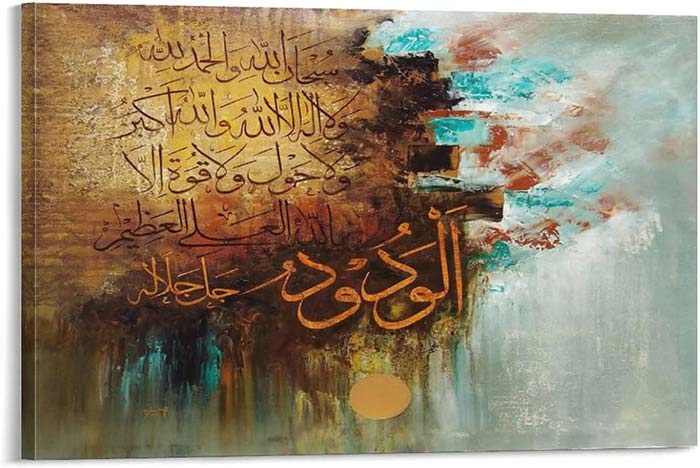 سُبْحَانَ اللهِ وَالْحَمْدُ لِلهِ
وَلَا اِلٰهَ اِلَّا اللهُ وَاللهُ اَكْبَرُ
وَلَا حَوْلَ وَلَا قُوَّةَ اِلَّا
بِاللهِ الْعَلِيِّ الْعَظِيْمِ
اَلْوَدُوْدُ جَلَّ جَلَالُهُ